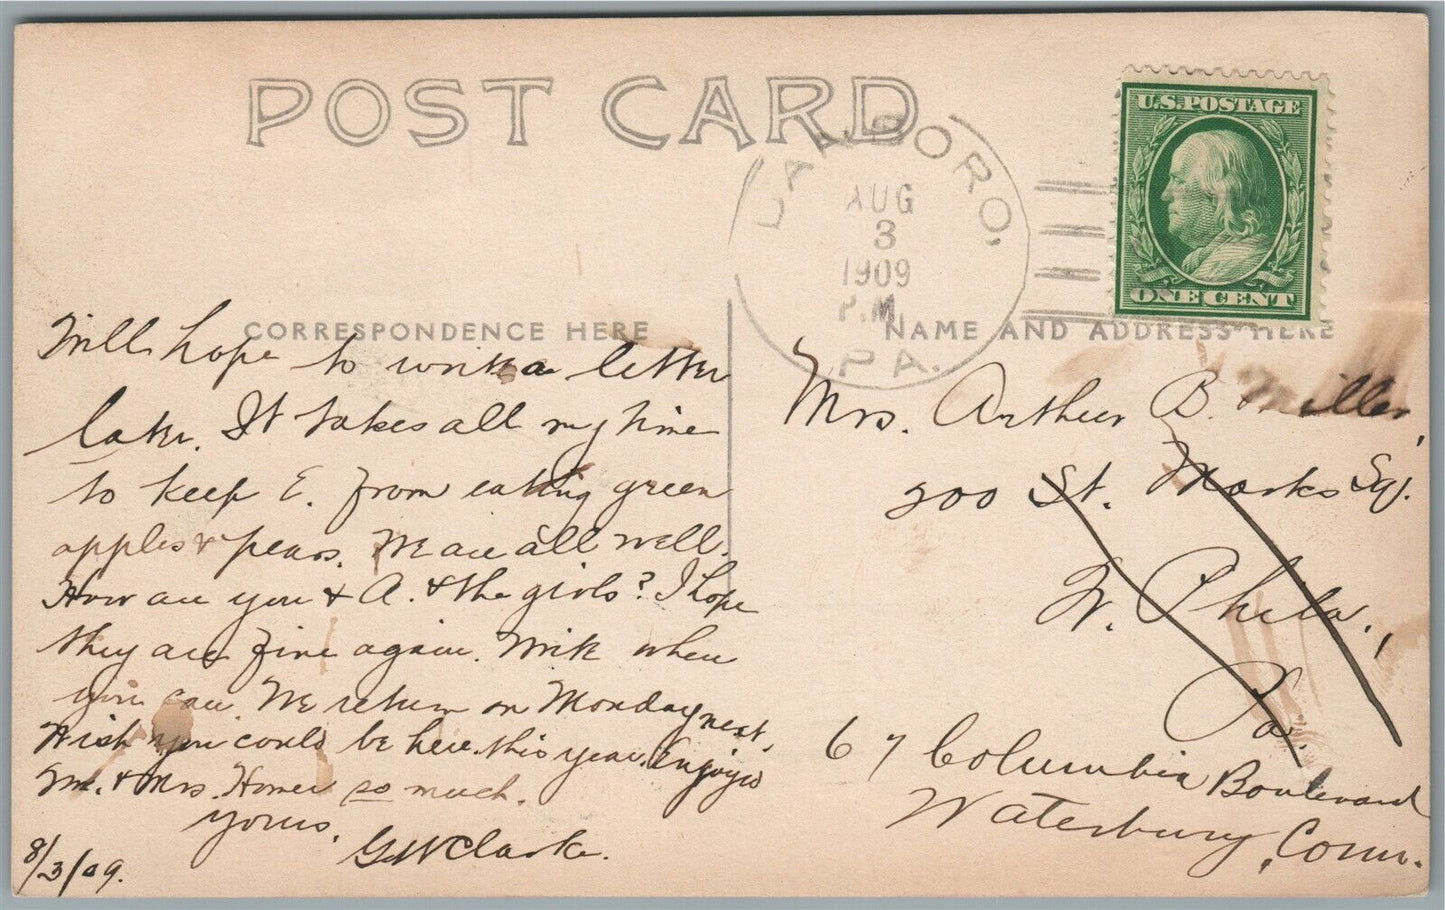 POST CARD
LANESBORO,
AUG
3
1909
P.M.
PA.
U.S. POSTAGE
ONE CENT
CORRESPONDENCE HERE
NAME AND ADDRESS HERE
Will hope to write a letter
later. It takes all my time
to keep E. from eating green
apples & pears. We are all well.
How are you & A. & the girls? I hope
they are fine again. Write when
you can. We return on Monday next.
Wish you could be here this year. Enjoyed
Mr. & Mrs. Homer so much.
Yours,
G W Clarke.
8/3/09.
Mrs. Arthur B. Miller,
200 St. Marks Sq.
W. Phila.,
Pa.
67 Columbia Boulevard
Waterbury, Conn.